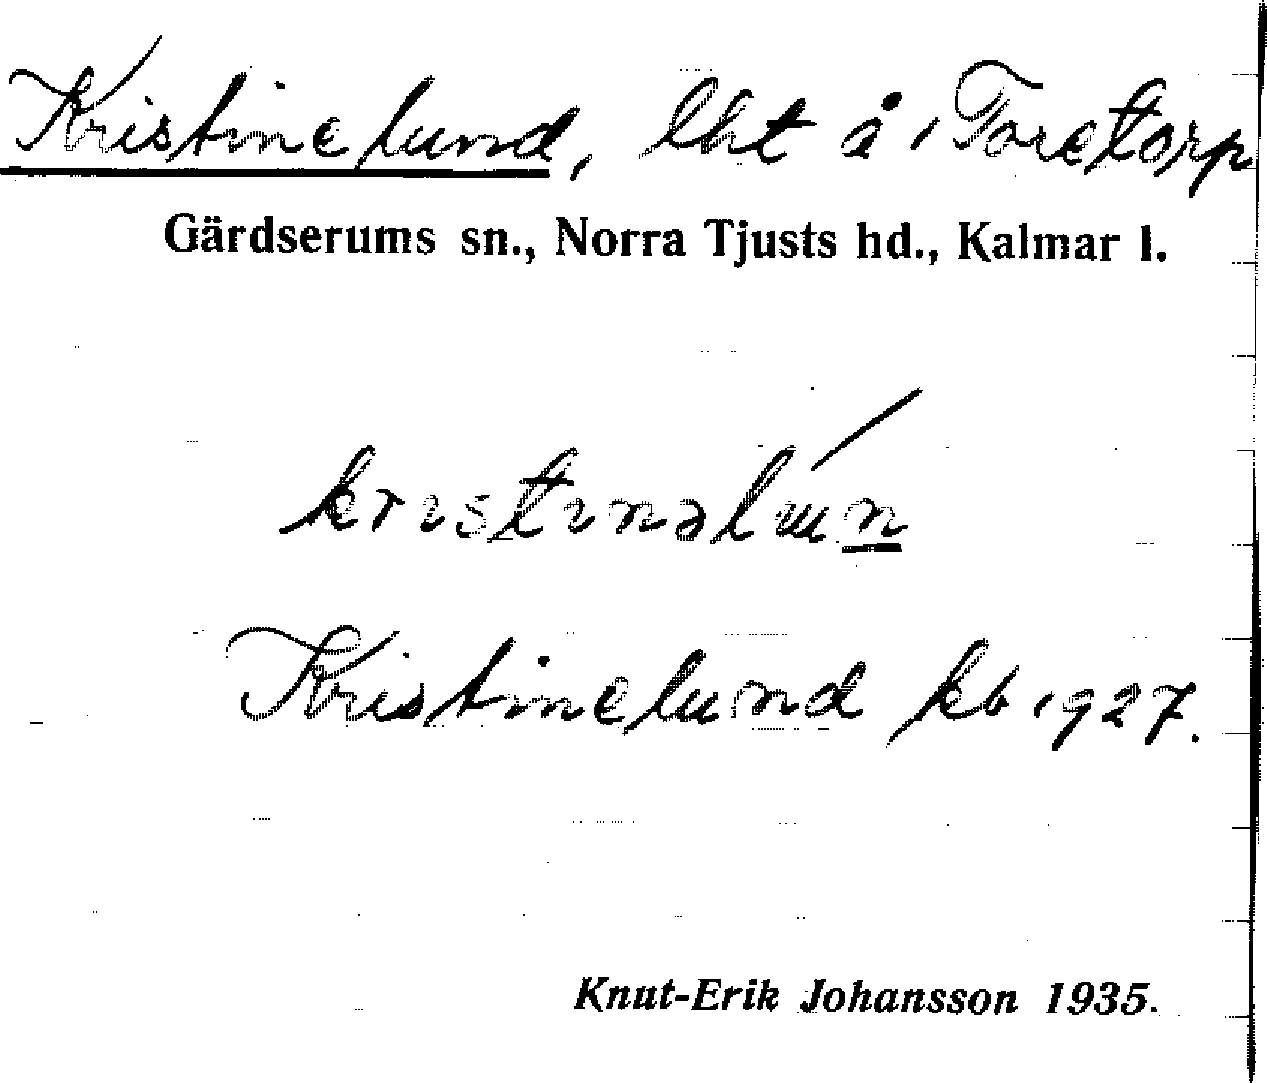 Kristinelund, lht å 1 Toretorp
Gärdserums sn., Norra Tjusts hd., Kalmar l.
kristinəlun
Kristinelund kb 1927.
Knut-Erik Johansson 1935.